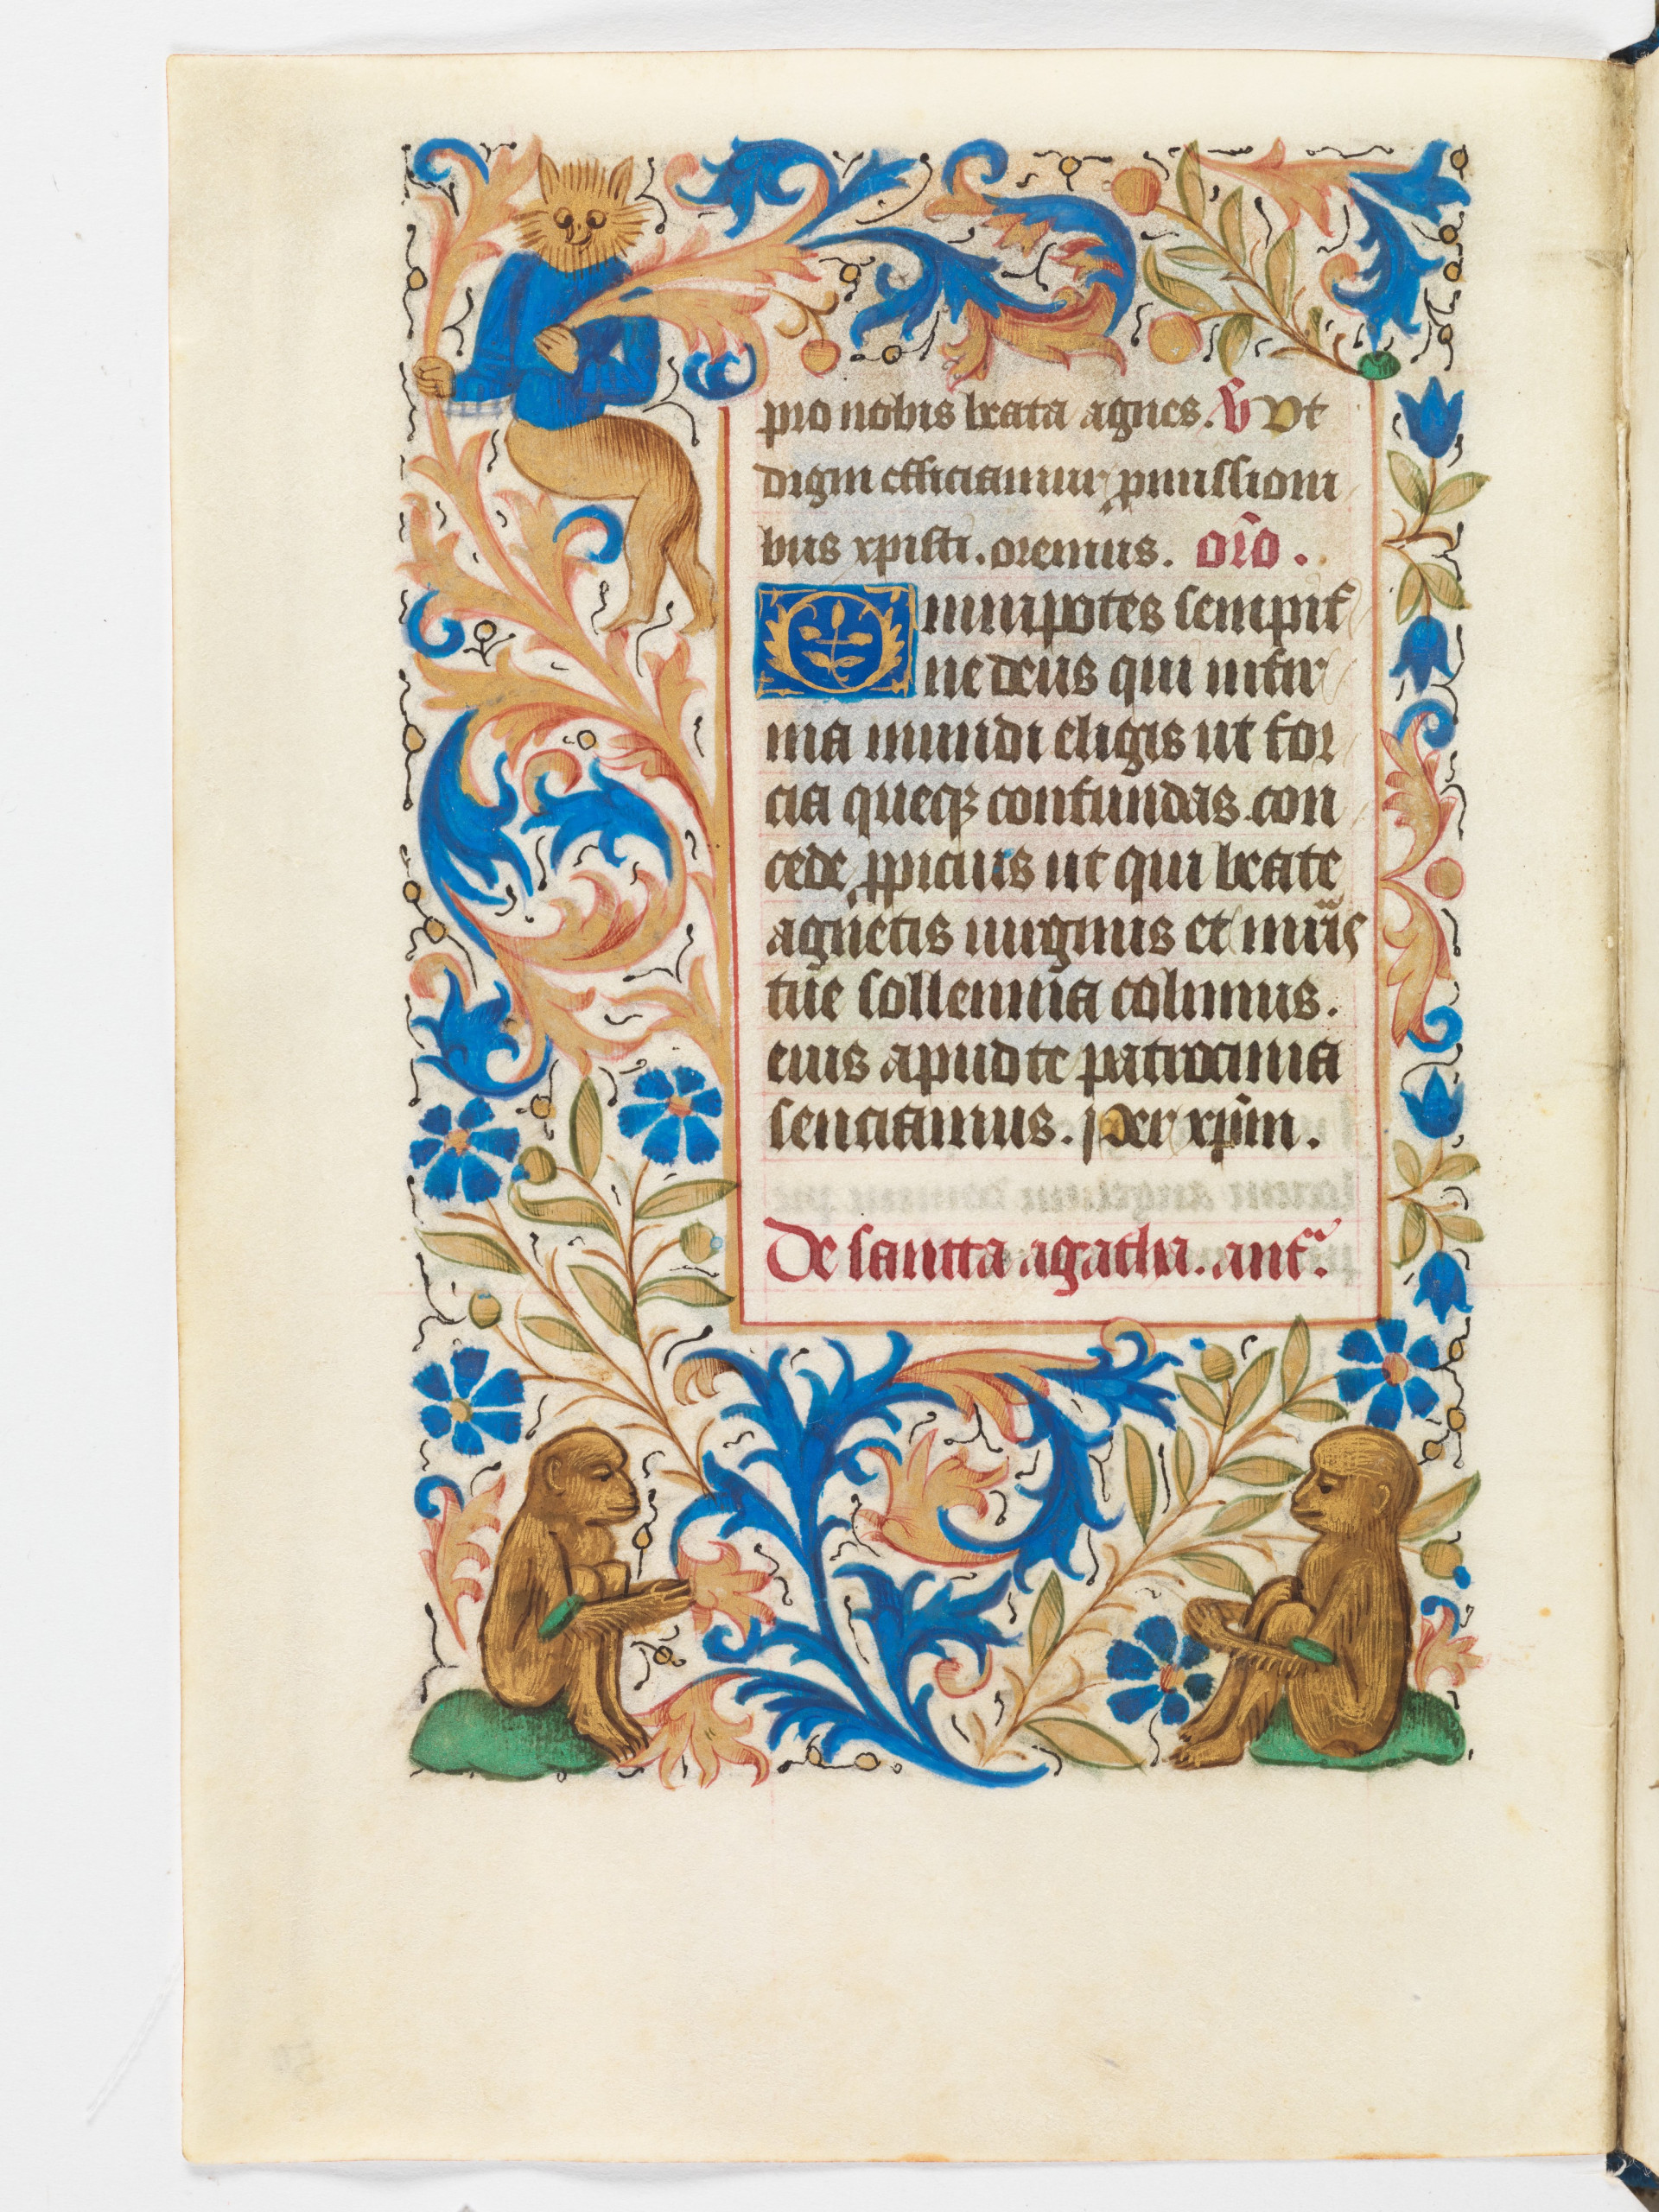 pro nobis beata agnes. V̄ Vt
digni efficiamur ꝓmissioni
bus xpisti. oremus. orō.
Omnipotēs sempit̄
ne deus qui infir
ma mundi eligis ut for
cia queqꝫ confundas. con
cede ꝓpicius ut qui beate
agnetis uirginis et mr̄is
tue sollennia colimus.
eius apud te patrocinia
senciamus. Per xp̄m.
De sancta agatha. ant̄.